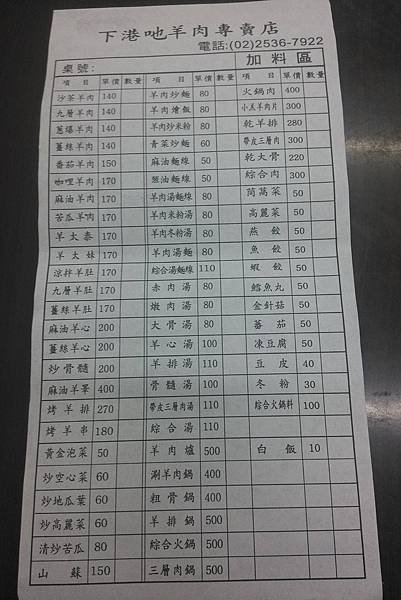 下港吔羊肉專賣店
電話:(02)2536-7922
桌號: 加料區
項目 單價 數量 項目 單價 數量 項目 單價 數量
沙茶羊肉 140 羊肉炒麵 80 火鍋肉 400
九層羊肉 140 羊肉燴飯 80 小羔羊肉片 300
蔥爆羊肉 140 羊肉炒米粉 80 乾羊排 280
薑絲羊肉 140 青菜炒麵 60 帶皮三層肉 300
番茄羊肉 150 麻油麵線 50 乾大骨 220
咖哩羊肉 170 蔥油麵線 50 綜合肉 300
麻油羊肉 170 羊肉湯麵線 80 茼萵菜 50
苦瓜羊肉 170 羊肉米粉湯 80 高麗菜 50
羊太泰 170 羊肉冬粉湯 80 燕餃 50
羊太妹 170 羊肉湯麵 80 魚餃 50
涼拌羊肚 170 綜合湯麵線 110 蝦餃 50
九層羊肚 170 赤肉湯 80 鱈魚丸 50
薑絲羊肚 170 燉肉湯 80 金針菇 50
麻油羊心 200 大骨湯 80 蕃茄 50
薑絲羊心 200 羊心湯 100 凍豆腐 50
炒骨髓 200 羊排湯 110 豆皮 40
麻油羊睪 400 骨髓湯 100 冬粉 30
烤羊排 270 帶皮三層肉湯 110 綜合火鍋料 100
烤羊串 180 綜合湯 110
黃金泡菜 50 羊肉爐 500 白飯 10
炒空心菜 60 涮羊肉鍋 400
炒地瓜葉 60 粗骨鍋 400
炒高麗菜 60 羊排鍋 500
清炒苦瓜 80 綜合火鍋 500
山蘇 150 三層肉鍋 500